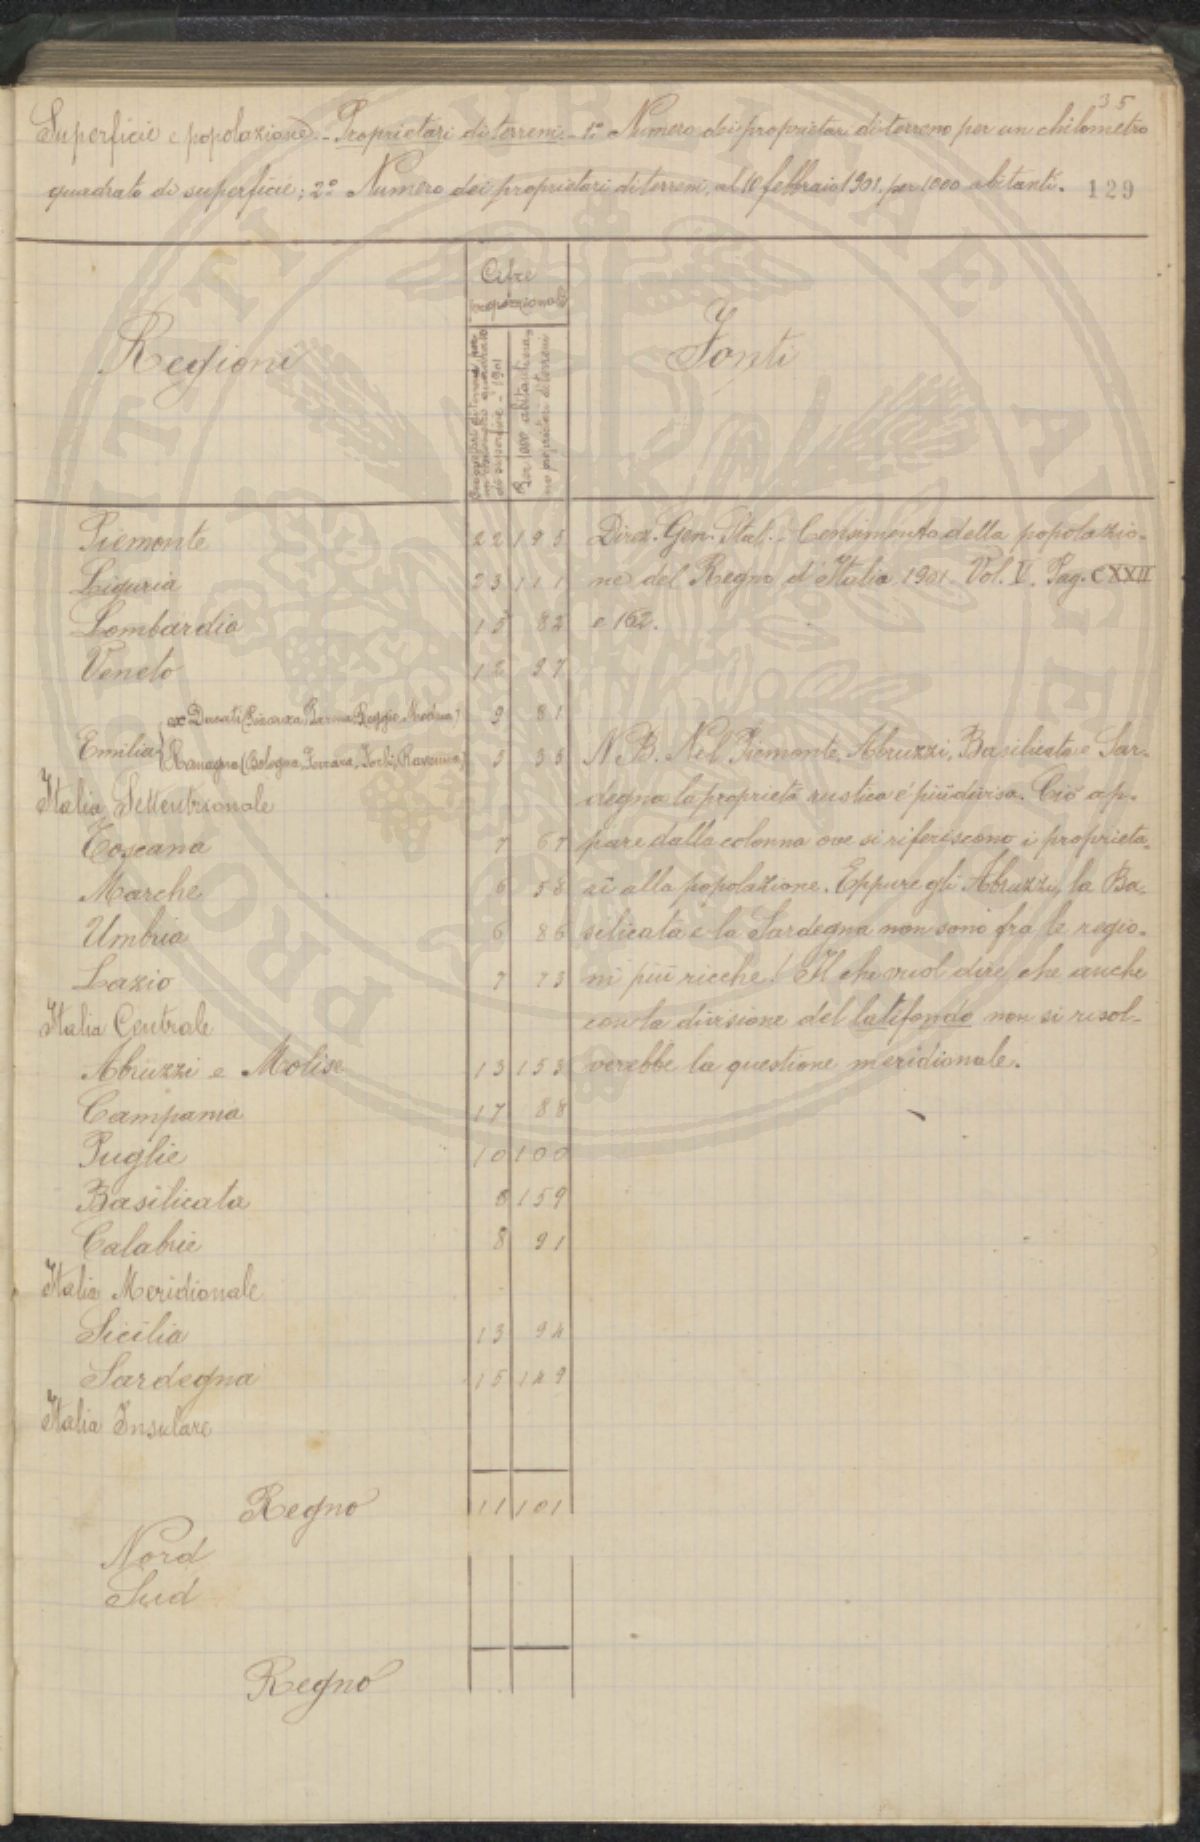 35
Superficie e popolazione. - Proprietari di terreni. - 1° Numero dei proprietari di terreno per un chilometro
quadrato di superficie; 2° Numero dei proprietari di terreni, al 10 febbraio 1901, per 1000 abitanti. 129
Regioni
Cifre
proporzionali
Proprietari di terreni per
un chilometro quadrato
di superficie - 1901
Per 1000 abitanti sono
proprietari di terreni
Fonti
Piemonte 22 195 Direz. Gen. Stat. - Censimento della popolazio-
Liguria 23 111 ne del Regno d'Italia 1901. Vol. V. Pag. CXXII
Lombardia 15 82 e 162.
Veneto 12 97
ex Ducati (Piacenza, Parma, Reggio, Modena) 9 81
Emilia { Romagna (Bologna, Ferrara, Forlì, Ravenna) 5 35 N.B. Nel Piemonte, Abruzzi, Basilicata e Sar-
Italia Settentrionale degna la proprietà rustica è più divisa. Ciò ap-
Toscana 7 67 pare dalla colonna ove si riferiscono i proprieta-
Marche 6 58 ri alla popolazione. Eppure gli Abruzzi, la Ba-
Umbria 6 86 silicata e la Sardegna non sono fra le regio-
Lazio 7 73 ni più ricche! Il che vuol dire, che anche
Italia Centrale con la divisione del latifondo non si risol-
Abruzzi e Molise 13 153 verebbe la questione meridionale.
Campania 17 88
Puglie 10 100
Basilicata 8 159
Calabrie 8 91
Italia Meridionale
Sicilia 13 94
Sardegna 15 149
Italia Insulare
Regno 11 101
Nord
Sud
Regno